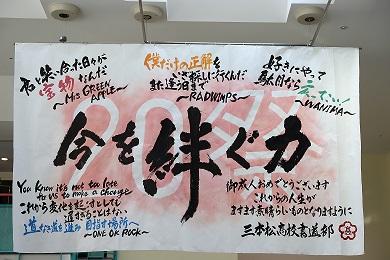 君と笑い合った日々が
宝物なんだ
〜Mrs.GREEN
APPLE〜
僕だけの正解を
いざ探しに行くんだ
また逢う日まで
〜RADWIMPS〜
好きにやって
駄目なら
〜WANIMA〜
20祭
今を絆ぐ力
You know it's not too late
for us to make a change
これから変化を起こすとしても
遅すぎることはない
道なき道を進み 目指す場所へ
〜ONE OK ROCK〜
御成人おめでとうございます
これからの人生が
ますます素晴らしいものとなりますように
三本松高校書道部